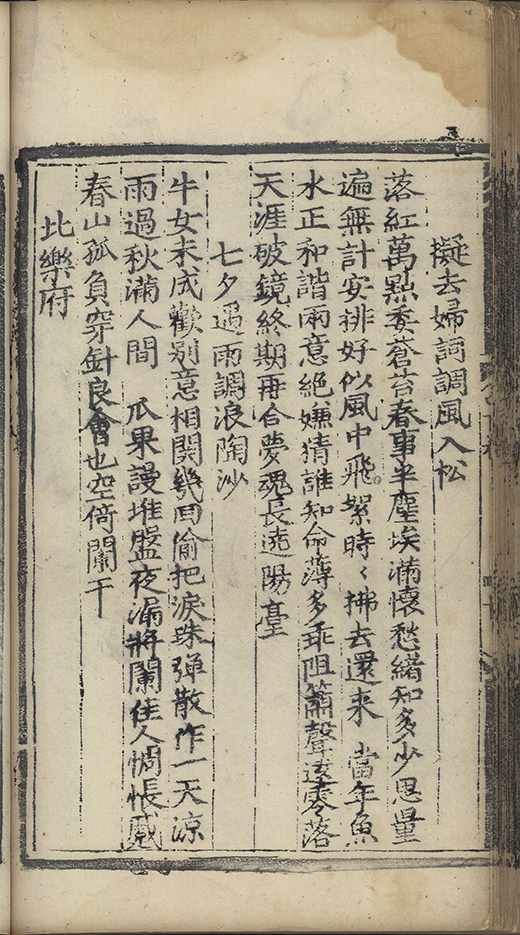 擬去婦詞調風入松
落紅萬點委蒼苔春事半塵埃滿懷愁緒知多少思量
遍無計安排好似風中飛絮時〻拂去還來　當年魚
水正和諧雨意絕嫌猜誰知命薄多乖阻簫聲遠零落
天涯破鏡終期再合夢魂長遶陽臺
七夕遇雨調浪陶沙
牛女未成歡别意相関幾回偷把淚珠弹散作一天涼
雨過秋滿人間　瓜果謾堆盤夜漏將闌佳人惆悵蹙
春山孤負穿針良會也空倚闌干
北樂府